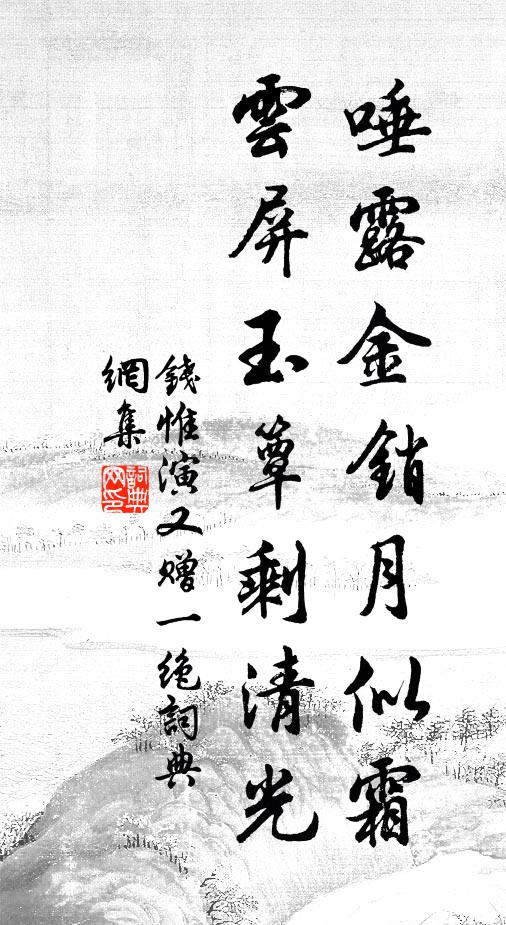 唾露金銷月似霜
雲屏玉簟剩清光
錢惟演又贈一絶詞典
網集
詞典網印